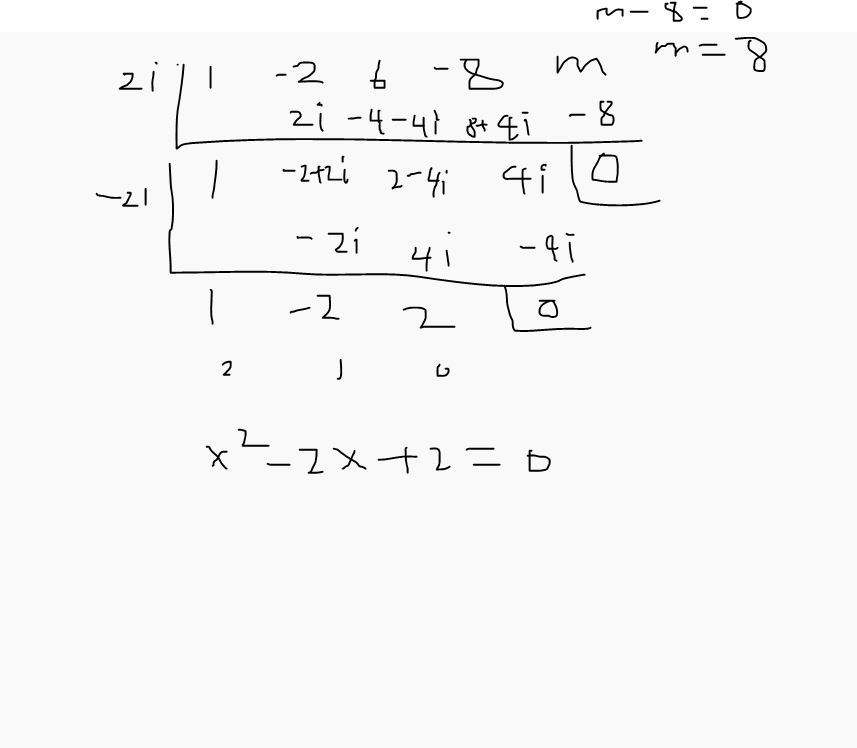 m - 8 = 0
m = 8
2i | 1 -2 6 -8 m
2i -4-4i 8+4i -8
-2i | 1 -2+2i 2-4i 4i | 0
-2i 4i -4i
1 -2 2 | 0
2 1 0
x² - 2x + 2 = 0